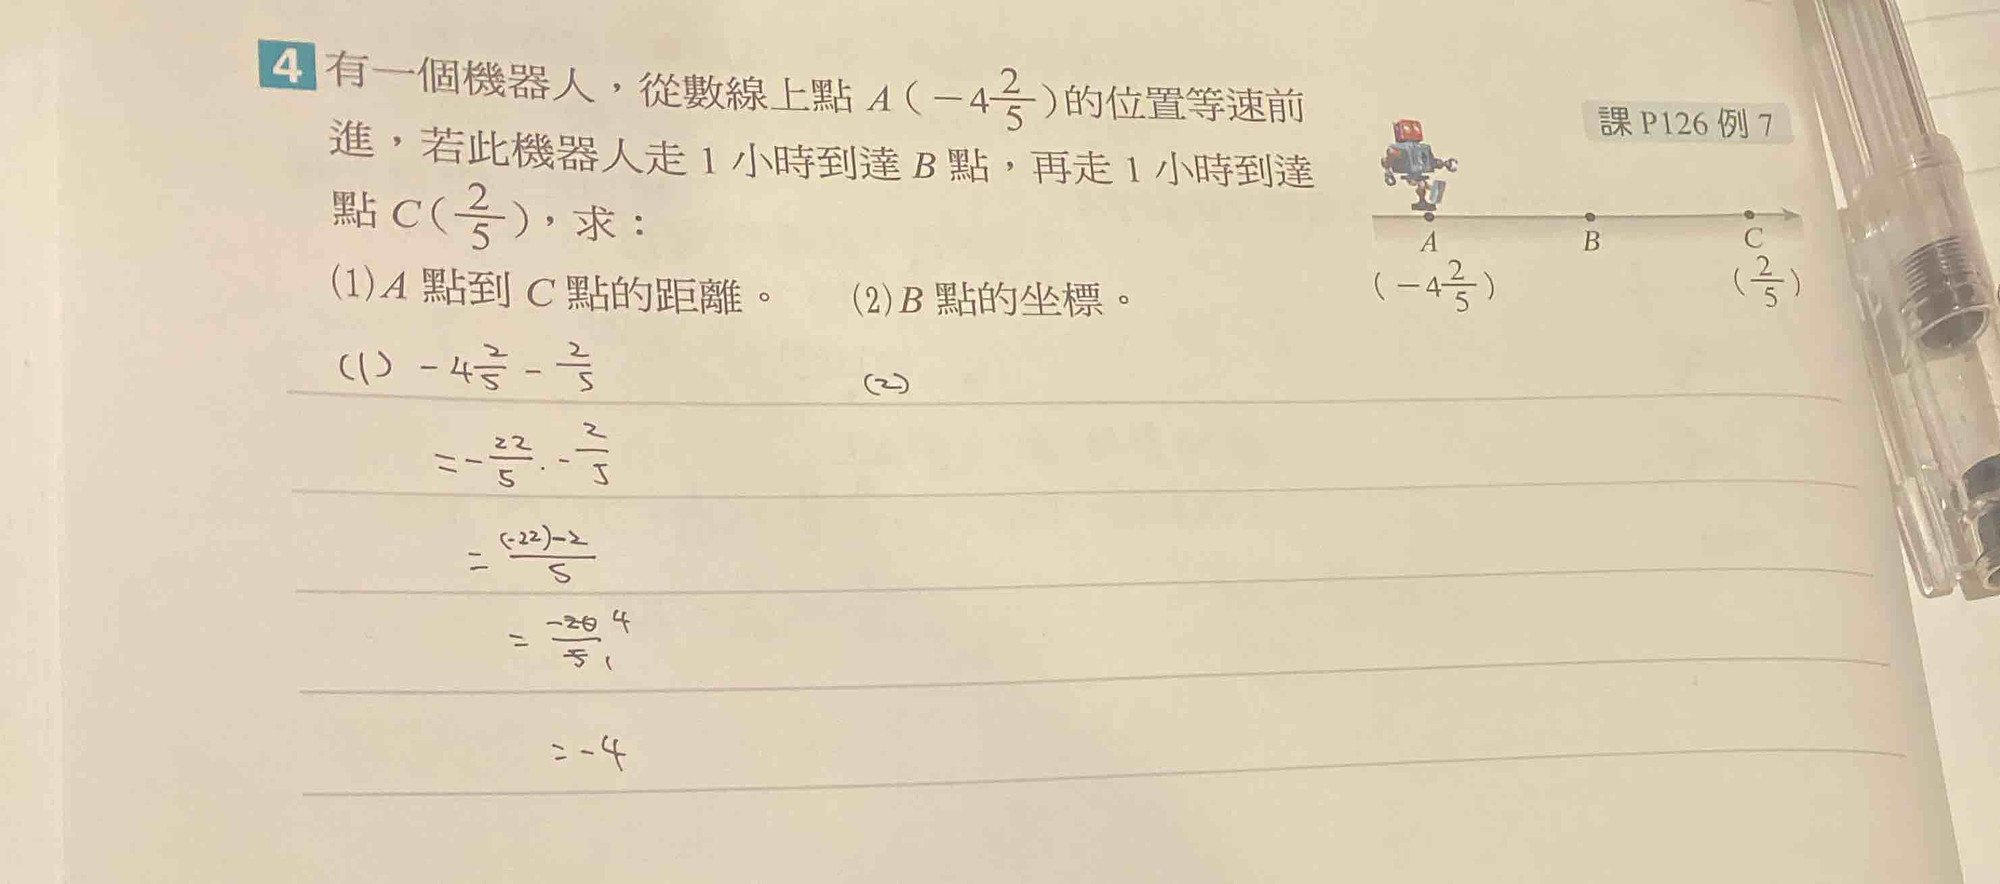 4 有一個機器人，從數線上點 A ( －4 2/5 ) 的位置等速前
進，若此機器人走 1 小時到達 B 點，再走 1 小時到達
點 C ( 2/5 )，求：
(1) A 點到 C 點的距離。 (2) B 點的坐標。
課 P126 例 7
A B C
( －4 2/5 ) ( 2/5 )
(1) - 4 2/5 - 2/5
= - 22/5 . - 2/5
= (-22)-2/5
= -20/5 4 1
= -4
(2)